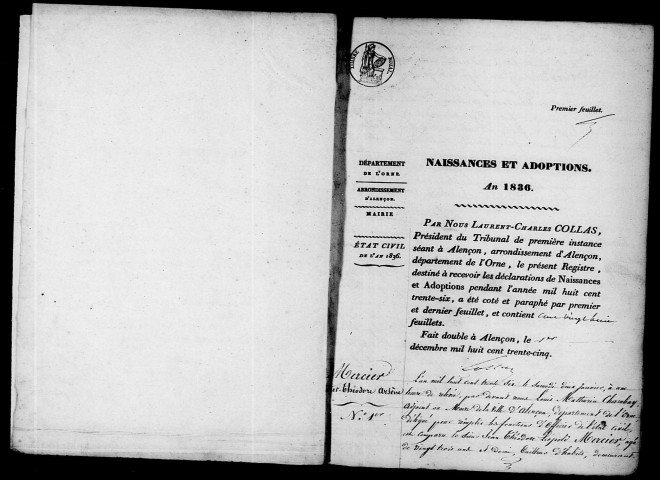 TIMBRE ROYAL
Premier feuillet.
DÉPARTEMENT
DE L'ORNE.
ARRONDISSEMENT
D'ALENÇON.
MAIRIE
ÉTAT CIVIL
DE L'AN 1836.
NAISSANCES ET ADOPTIONS.
An 1836.
PAR NOUS LAURENT-CHARLES COLLAS,
Président du Tribunal de première instance
séant à Alençon, arrondissement d'Alençon,
département de l'Orne, le présent Registre,
destiné à recevoir les déclarations de Naissances
et Adoptions pendant l'année mil huit cent
trente-six, a été coté et paraphé par premier
et dernier feuillet, et contient
feuillets.
Fait double à Alençon, le 1er
décembre mil huit cent trente-cinq.
Collas
Mercier
Théodore Arsène
N.° 1er
L'an mil huit cent trente six le samedi deux janvier, à
heure de relevée, par devant nous Louis Mathurin Chambay
adjoint au Maire de la ville d'Alençon, département de l'Orne
délégué pour remplir les fonctions d'officier de l'état civil,
est comparu le sieur Jean Théodore Léopold Mercier, âgé
de vingt trois ans et demi, tailleur d'habits, demeurant